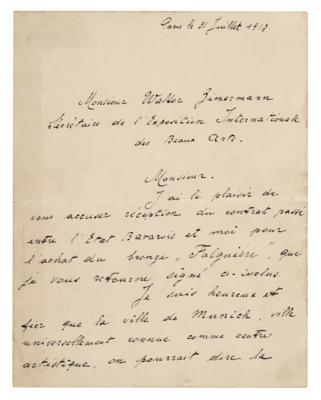 Paris le 31 Juillet 1913.
Monsieur Walter Zimermann
Sécrétaire de l'Exposition Internationale
des Beaux Arts.
Monsieur.
J'ai le plaisir de
vous accuser réception du contrat passé
entre l'Etat Bavarois et moi pour
l'achat du bronze „Falguière", que
je vous retourne signé ci-inclus.
Je suis heureux et
fier que la ville de Munich, ville
universellement connue comme centre
artistique, on pourrait dire la